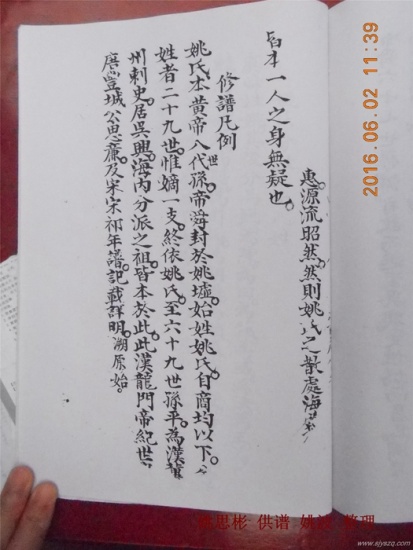 惠源流昭然。然則姚氏之散處海
皆本一人之身無疑也。
修譜凡例
姚氏本黄帝八世代孫。帝舜封於姚墟。始姓姚氏。自商均以下。
姓者二十九世。惟嫡一支。終依姚氏。至六十九世孫平。為漢
州刺史。居吳興。海内分派之祖。皆本於此。此漢龍門帝紀世
唐豈城公思廉。及宋宋祁年譜。記載詳明。溯原始。
2016.06.02 11:39
思彬 供谱 姚 整理